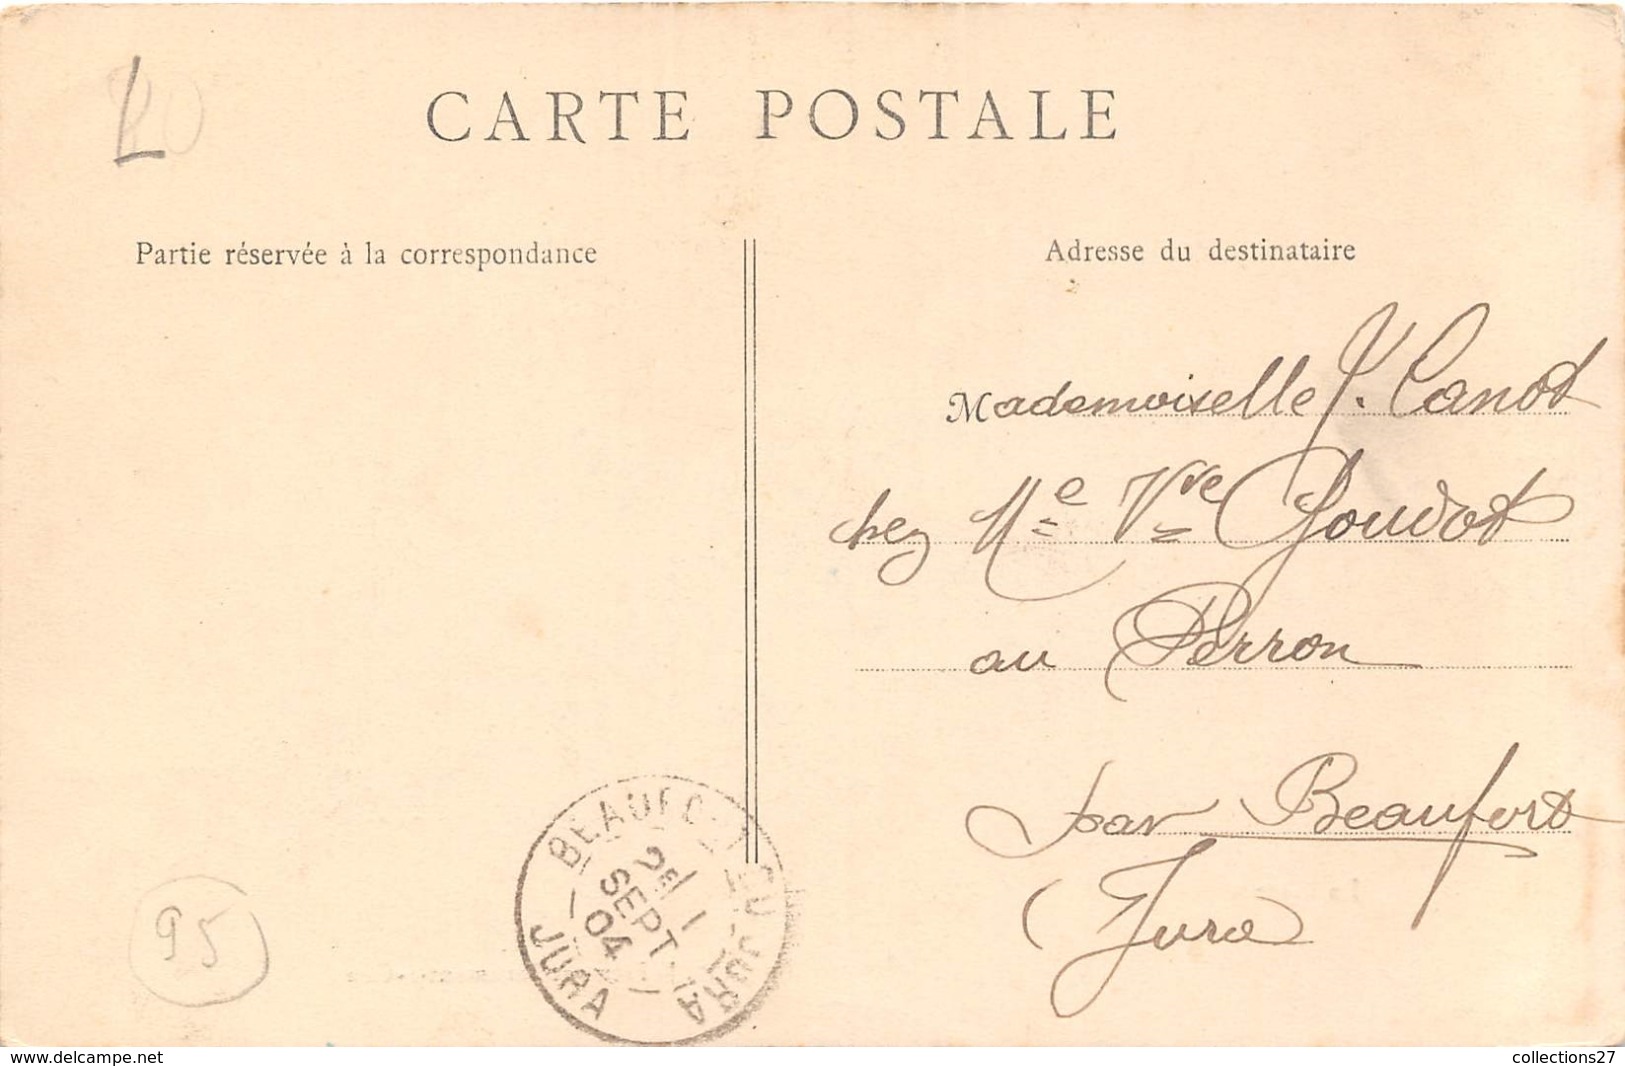 CARTE POSTALE
Partie réservée à la correspondance
Adresse du destinataire
Mademoiselle J. Canot
chez Me Vve Goudot
au Perron
par Beaufort
Jura
BEAUFORT DU JURA
2E 1
SEPT
04
JURA
95
www.delcampe.net
collections27